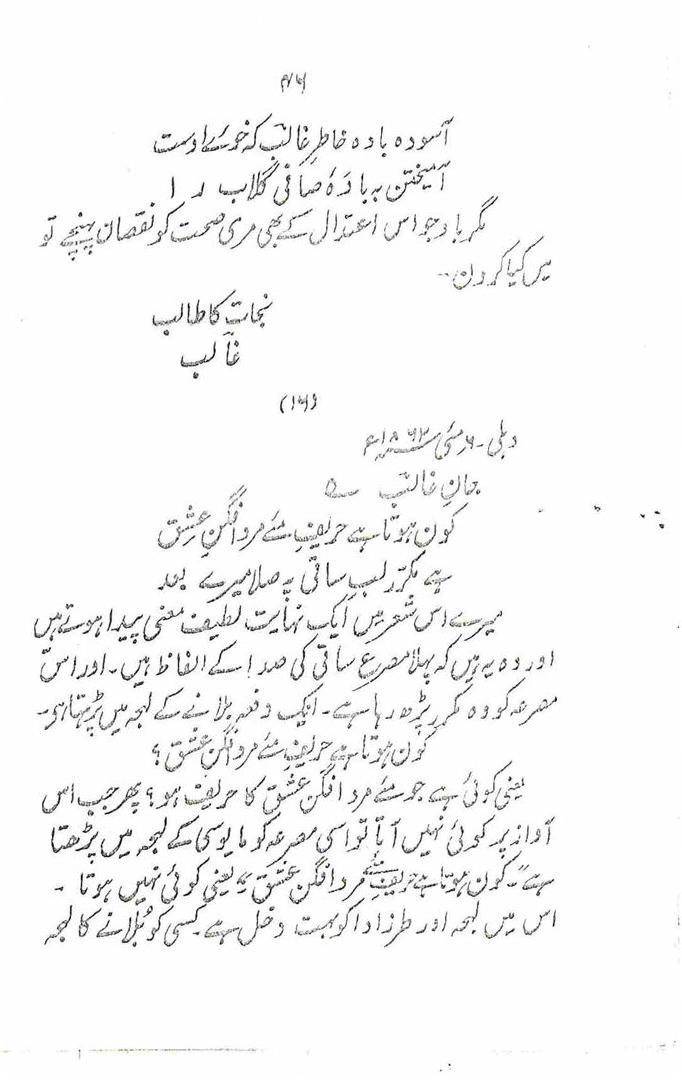 ۴۶
آسودہ بادہ خاطرِ غالبؔ کہ خوئے اوست
آمیختن بہ بادۂ صافی گلاب را
مگر باوجو اس اعتدال کے بھی مری صحت کو نقصان پہنچے تو
میں کیا کروں۔
نجات کا طالب
غالب
(۱۶)
دہلی۔ ۶ مئی ۱۸۶۳ء
جانِ غالبؔ ؎
کون ہوتا ہے حریفِ مئے مرد افگنِ عشق
ہے مکرّر لبِ ساقی پہ صلا میرے بعد
میرے اس شعر میں ایک نہایت لطیف معنی پیدا ہوتے ہیں
اور وہ یہ ہیں کہ پہلا مصرع ساقی کی صدا کے الفاظ ہیں۔ اور اس
مصرعہ کو وہ مکرر پڑھ رہا ہے۔ ایک دفعہ بلانے کے لہجہ میں پڑہتا ہی۔
کون ہوتا ہے حریفِ مئے مرد افگنِ عشق؟
یعنی کوئی ہے جو مئے مرد افگن عشق کا حریف ہو؟ پھر جب اس
آواز پر کوئی نہیں آتا تو اسی مصرعہ کو مایوسی کے لہجہ میں پڑھتا
ہے "۔ کون ہوتا ہے حریفِ مئے مرد افگن عشق" یعنی کوئی نہیں ہوتا۔
اس میں لہجہ اور طرز ادا کو بہت دخل ہے۔ کسی کو بُلانے کا لہجہ